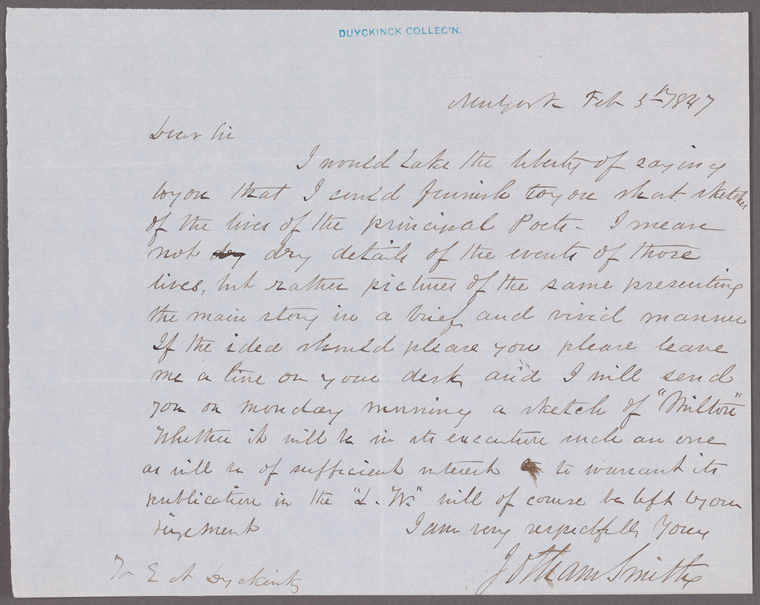 DUYCKINCK COLLEC'N.
New York Feb 5th 1847
Dear Sir
I would take the liberty of saying
to you that I could furnish to you short sketches
of the lives of the principal Poets - I mean
not dry details of the events of those
lives, but rather pictures of the same presenting
the main story in a brief and vivid manner
If the idea should please you please leave
me a line on your desk and I will send
you on monday morning a sketch of "Milton"
Whether it will be in its execution such an one
as will be of sufficient interest to warrant its
publication in the "L. W." will of course be left to your
I am very respectfully Yours
Jotham Smith
To E A Dyckink